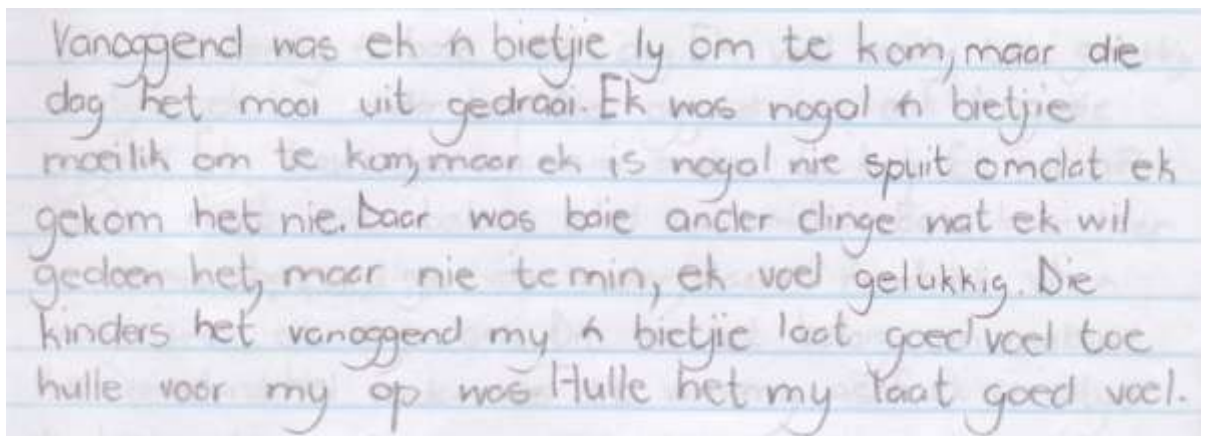 Vanoggend was ek ń bietjie ly om te kom, maar die
dag het mooi uit gedraai. Ek was nogal ń bietjie
moeilik om te kom, maar ek is nogal nie spuit omdat ek
gekom het nie. Daar was baie ander dinge wat ek wil
gedoen het, maar nie te min, ek voel gelukkig. Die
kinders het vanoggend my ń bietjie laat goed voel toe
hulle voor my op was Hulle het my laat goed voel.